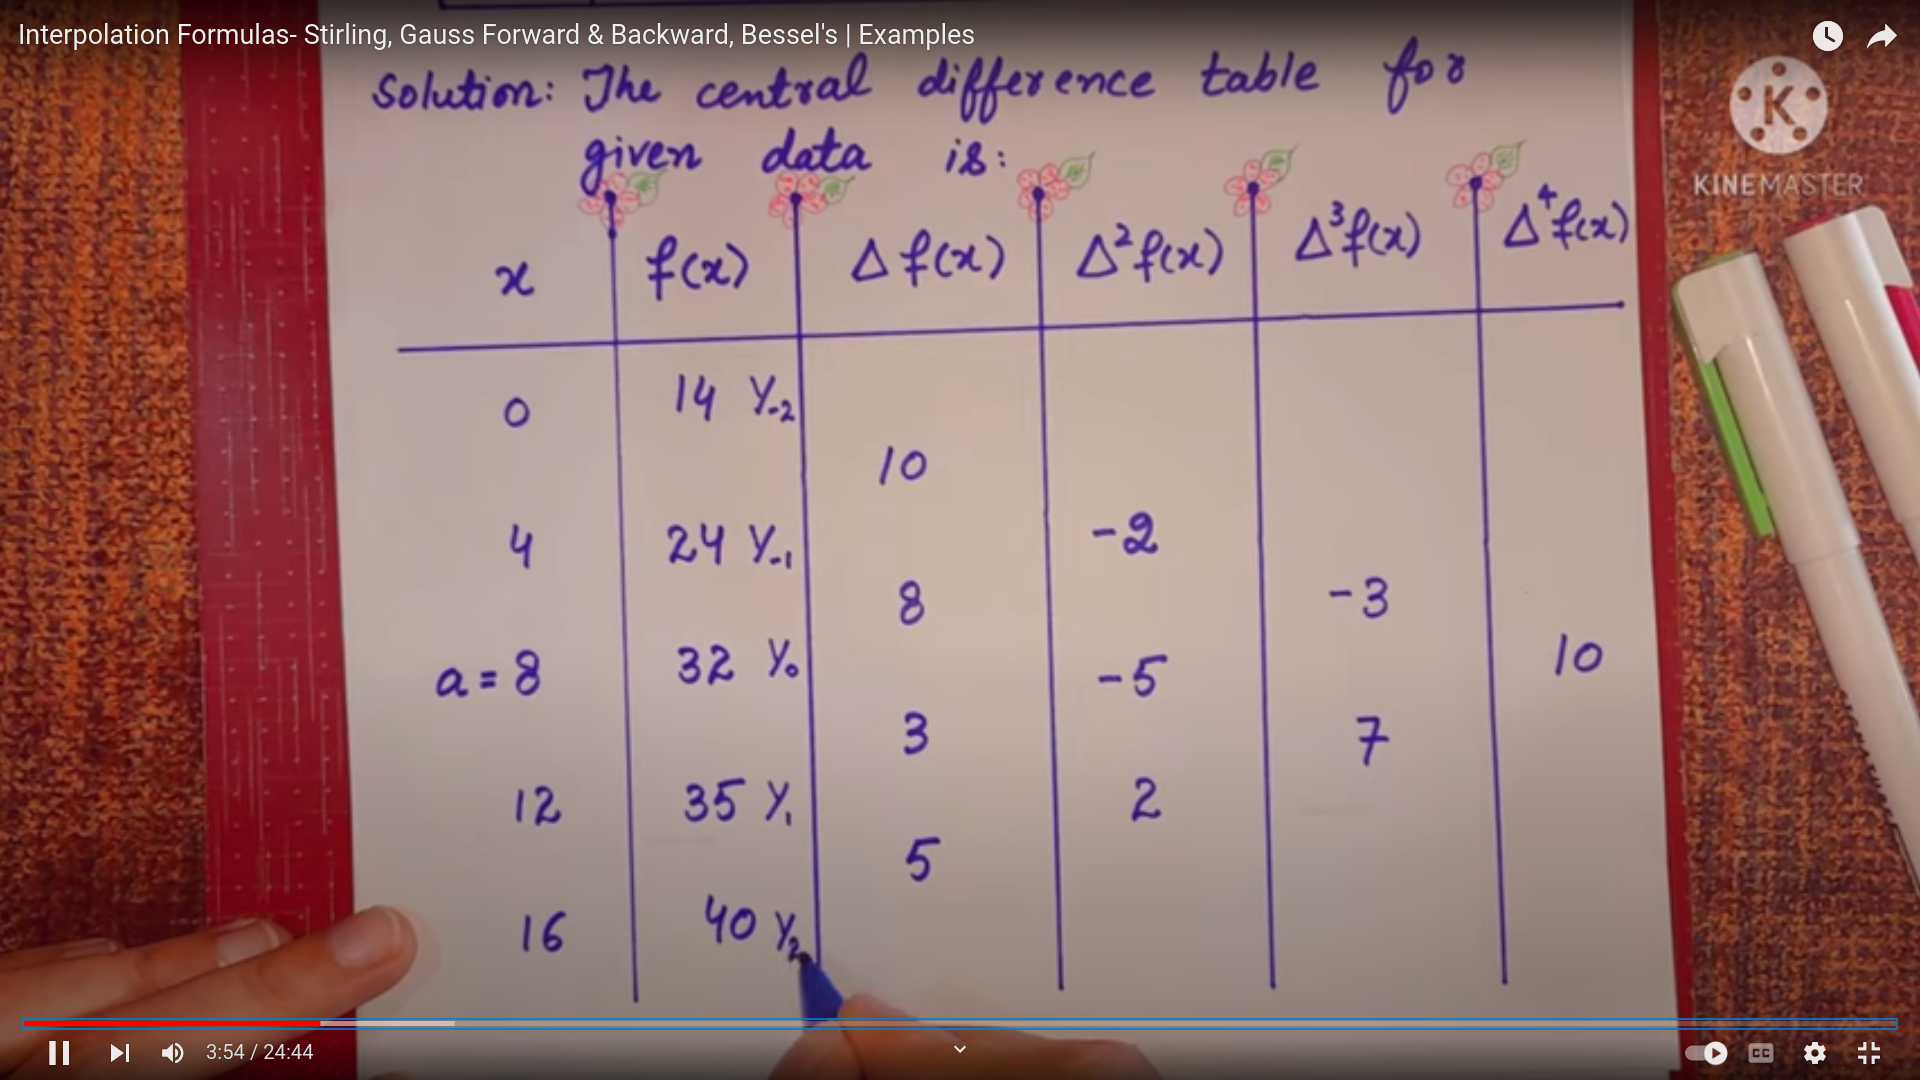 Interpolation Formulas- Stirling, Gauss Forward & Backward, Bessel's | Examples
Solution: The central difference table for
given data is:
KINEMASTER
x f(x) Δ f(x) Δ²f(x) Δ³f(x) Δ⁴f(x)
0 14 y₋₂
10
4 24 y₋₁ -2
8 -3
a = 8 32 y₀ -5 10
3 7
12 35 y₁ 2
5
16 40 y₂
3:54 / 24:44
CC